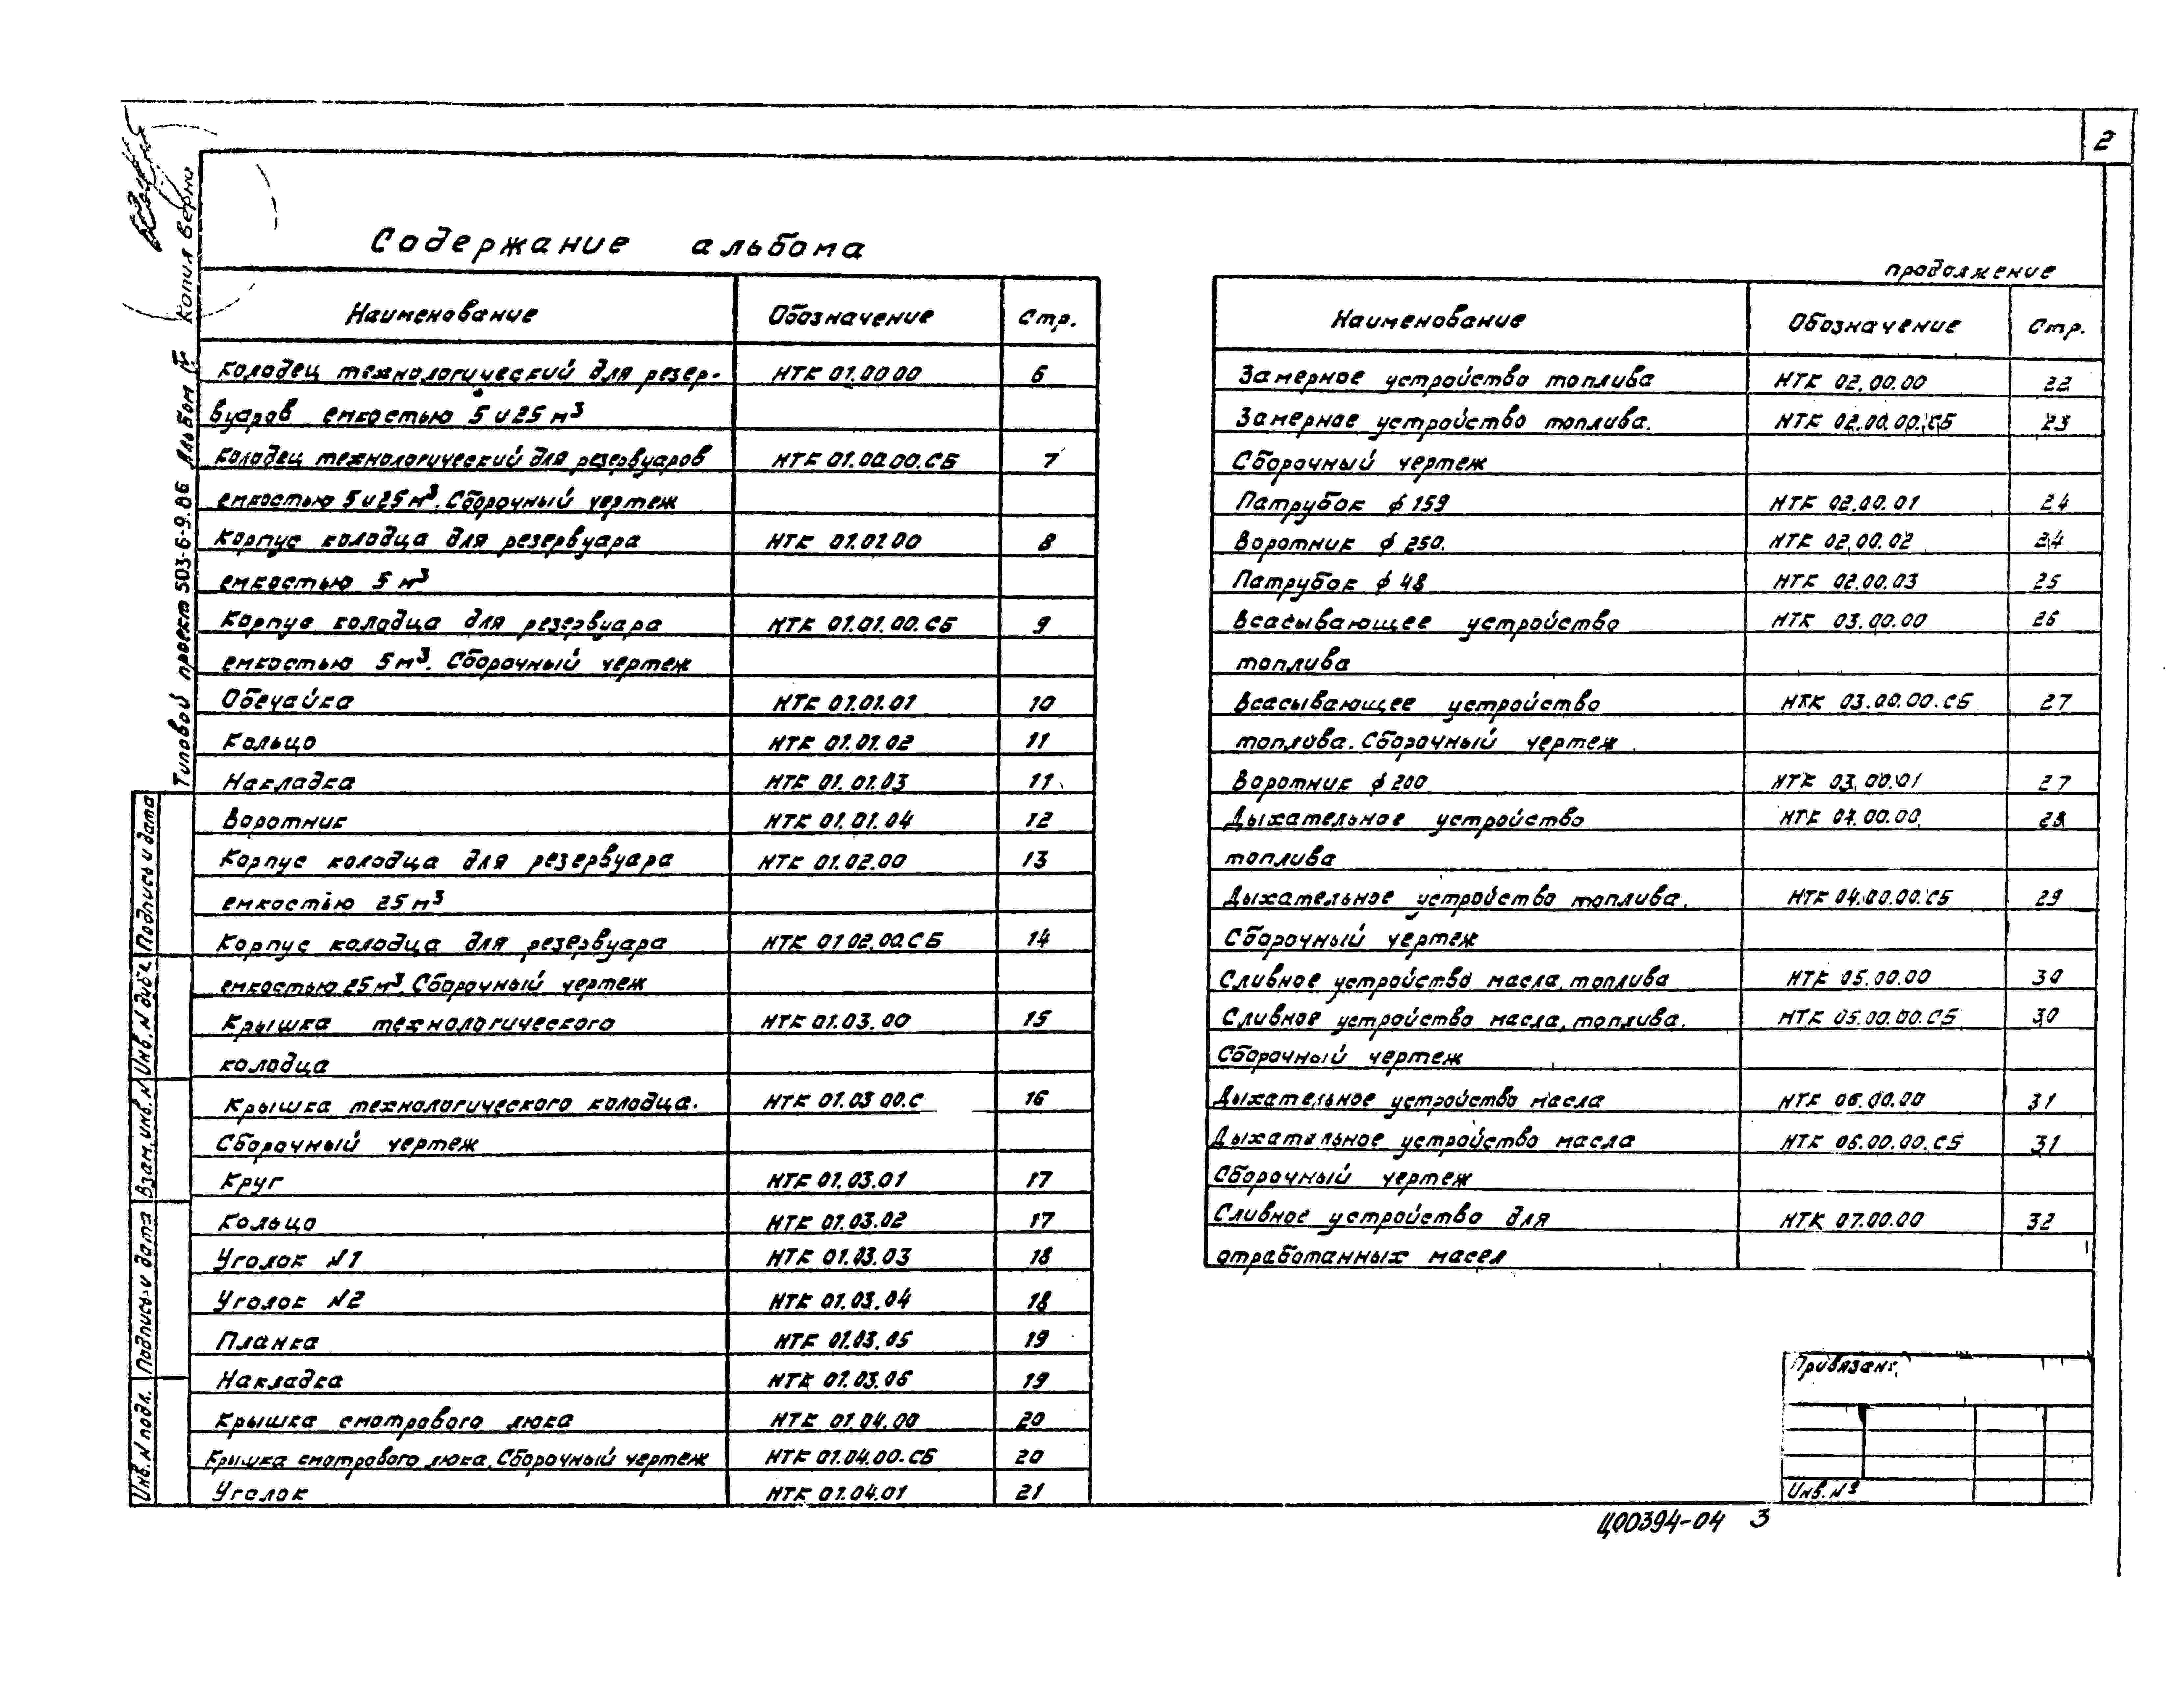 2
Содержание альбома
Наименование Обозначение Стр.
Колодец технологический для резер- НТК 01.00 00 6
вуаров емкостью 5 и 25 м³
Колодец технологический для резервуаров НТК 01.00.00.СБ 7
емкостью 5 и 25 м³. Сборочный чертеж
Корпус колодца для резервуара НТК 01.01 00 8
емкостью 5 м³
Корпус колодца для резервуара НТК 01.01.00.СБ 9
емкостью 5 м³. Сборочный чертеж
Обечайка НТК 01.01.01 10
Кольцо НТК 01.01.02 11
Накладка НТК 01.01.03 11
Воротник НТК 01.01.04 12
Корпус колодца для резервуара НТК 01.02.00 13
емкостью 25 м³
Корпус колодца для резервуара НТК 01 02.00.СБ 14
емкостью 25 м³. Сборочный чертеж
Крышка технологического НТК 01.03.00 15
колодца
Крышка технологического колодца. НТК 01.03 00.С 16
Сборочный чертеж
Круг НТК 01.03.01 17
Кольцо НТК 01.03.02 17
Уголок N1 НТК 01.03.03 18
Уголок N2 НТК 01.03.04 18
Планка НТК 01.03.05 19
Накладка НТК 01.03.06 19
Крышка смотрового люка НТК 01.04.00 20
Крышка смотрового люка. Сборочный чертеж НТК 01.04.00.СБ 20
Уголок НТК 01.04.01 21
продолжение
Наименование Обозначение Стр.
Замерное устройство топлива НТК 02.00.00 22
Замерное устройство топлива. НТК 02.00.00.СБ 23
Сборочный чертеж
Патрубок ф 159 НТК 02.00.01 24
Воротник ф 250. НТК 02.00.02 24
Патрубок ф 48 НТК 02.00.03 25
Всасывающее устройство НТК 03.00.00 26
топлива
Всасывающее устройство НТК 03.00.00.СБ 27
топлива. Сборочный чертеж
Воротник ф 200 НТК 03.00.01 27
Дыхательное устройство НТК 04.00.00 28
топлива
Дыхательное устройство топлива. НТК 04.00.00.СБ 29
Сборочный чертеж
Сливное устройство масла, топлива НТК 05.00.00 30
Сливное устройство масла, топлива. НТК 05.00.00.СБ 30
Сборочный чертеж
Дыхательное устройство масла НТК 06.00.00 31
Дыхательное устройство масла НТК 06.00.00.СБ 31
Сборочный чертеж
Сливное устройство для НТК 07.00.00 32
отработанных масел
Привязан:
Инв. №
Ц00394-04 3
Копия верна
Типовой проект 503-6-9.86 Альбом
Подпись и дата
Инв. N дубл.
Взам. инв. N
Подпись и дата
Инв. N подл.